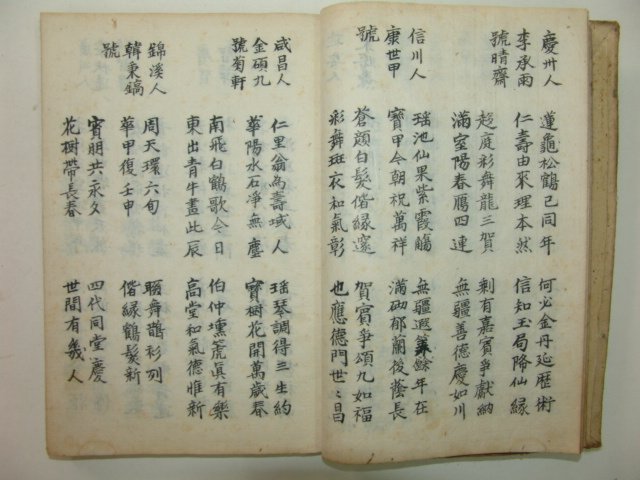 慶州人
李承雨
號晴齋
蓮龜松鶴已同年 何必金丹延歷術
仁壽由來理本然 信知玉局降仙緣
趍庭彩舞龍三賀 剩有嘉賓爭獻納
滿室陽春鴈四連 無疆善德慶如川
信川人
康世甲
號
瑶池仙果紫霞觴 無疆遐算餘年在
寶甲今朝祝萬祥 滿砌郁蘭後蔭長
蒼顔白髮偕緣邃 賀賓爭頌九如福
彩舞斑衣和氣彰 也應德門世〻昌
咸昌人
金碩九
號菊軒
仁里翁為壽域人 瑶琴調得三生約
華陽水石淨無塵 寶樹花開萬歲春
南飛白鶴歌今日 伯仲壎篪眞有樂
東出青牛畫此辰 高堂和氣德惟新
錦溪人
韓秉鎬
號
周天環六旬 聯舞鵲衫列
華甲復壬申 偕緣鶴髮新
賓朋共永久 四代同堂慶
花樹帶長春 世間有幾人